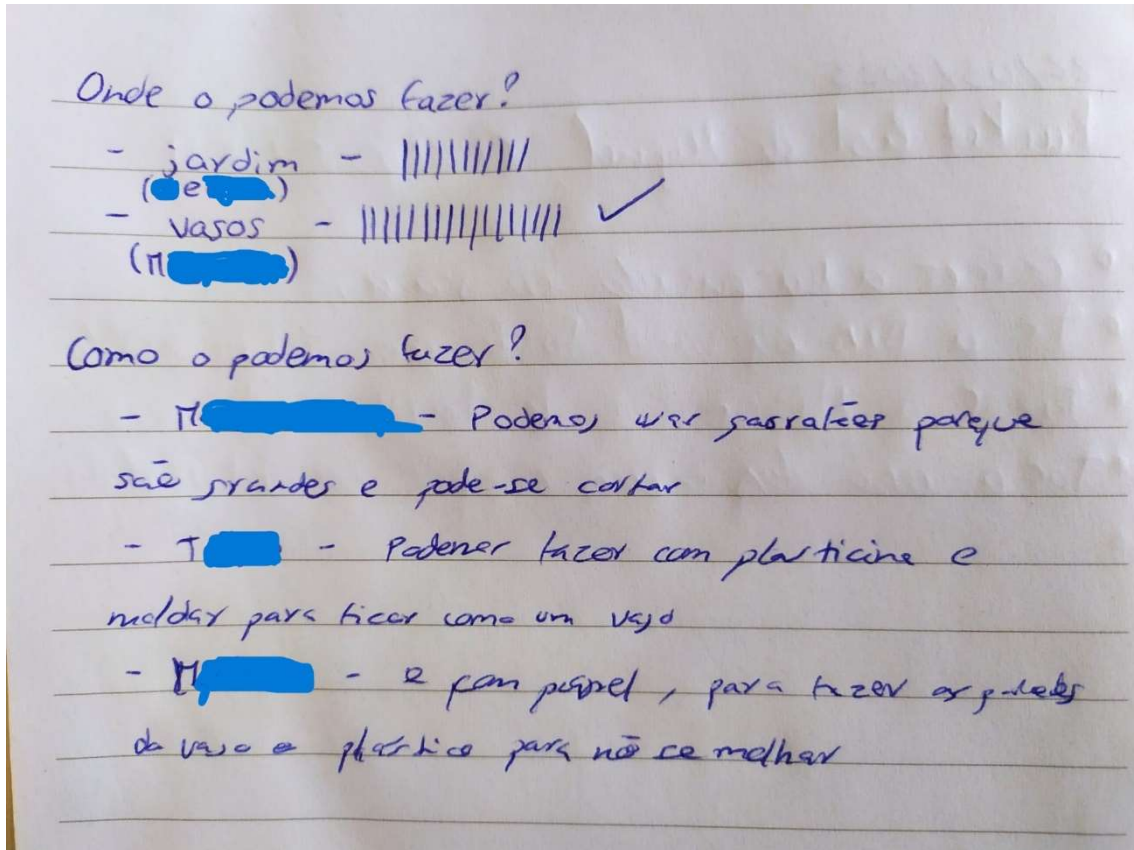 Onde o podemos fazer?
- jardim - ||||||||||
( e )
- vasos - |||||||||||||||| ✓
(M )
Como o podemos fazer?
- M - Podemos usar garrafões porque
são grandes e pode-se cortar
- T - Podemos fazer com plasticine e
moldar para ficar como um vaso
- M - e com papel, para fazer as paredes
do vaso e plástico para não se molhar